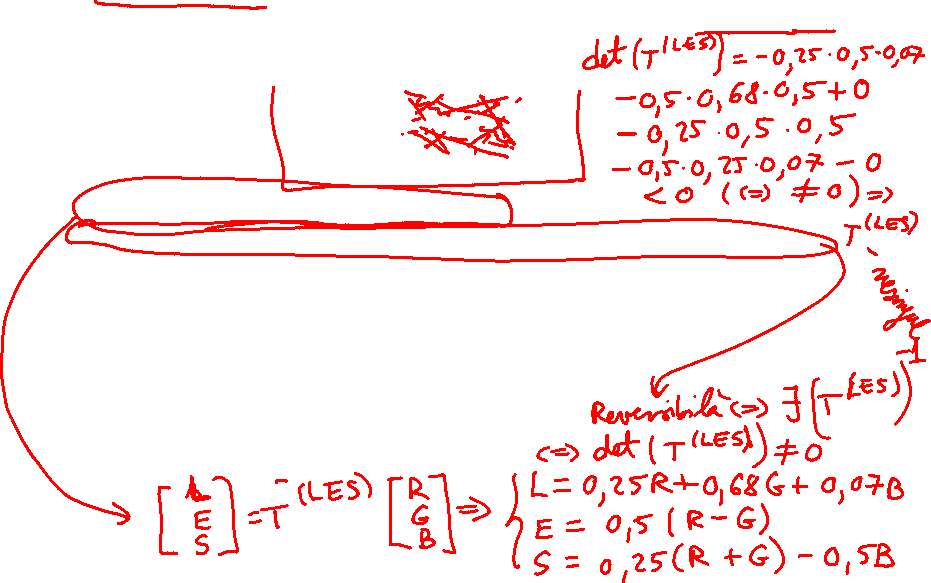 det(T^(LES)) = -0,25·0,5·0,07
-0,5·0,68·0,5+0
-0,25·0,5·0,5
-0,5·0,25·0,07-0
<0 (<=> ≠0) =>
T^(LES)
Reversibilă <=> ∃ (T^(LES))^-1
<=> det(T^(LES)) ≠ 0
[L E S] = T^(LES) [R G B] => { L = 0,25R+0,68G+0,07B
E = 0,5(R-G)
S = 0,25(R+G)-0,5B